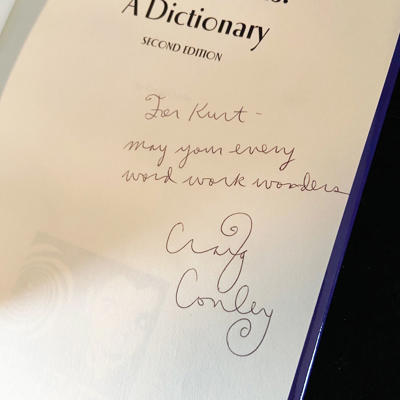 A Dictionary
SECOND EDITION
For Kurt -
may your every
word work wonders
Craig
Conley